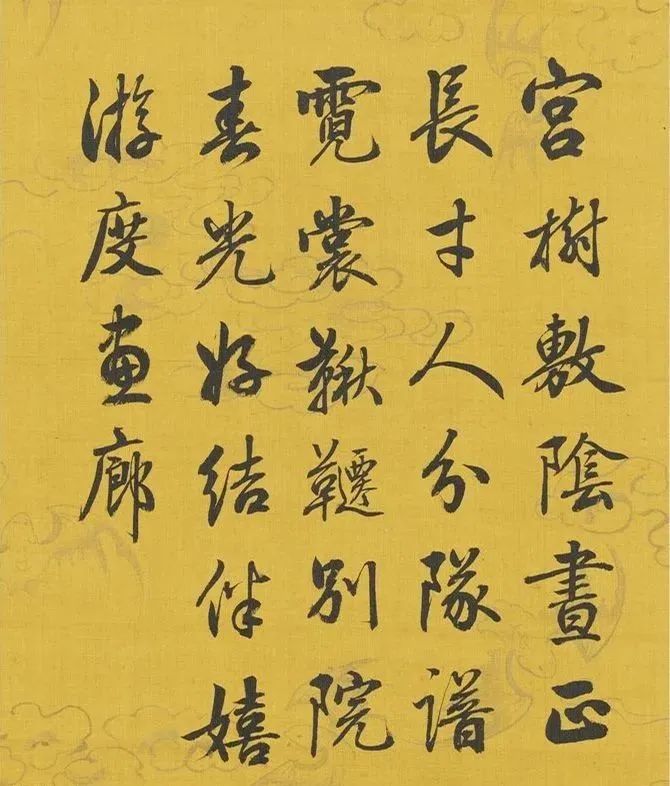 宮樹敷陰晝正
長才人分隊譜
霓裳鞦韆別院
春光好結伴嬉
游度畫廊